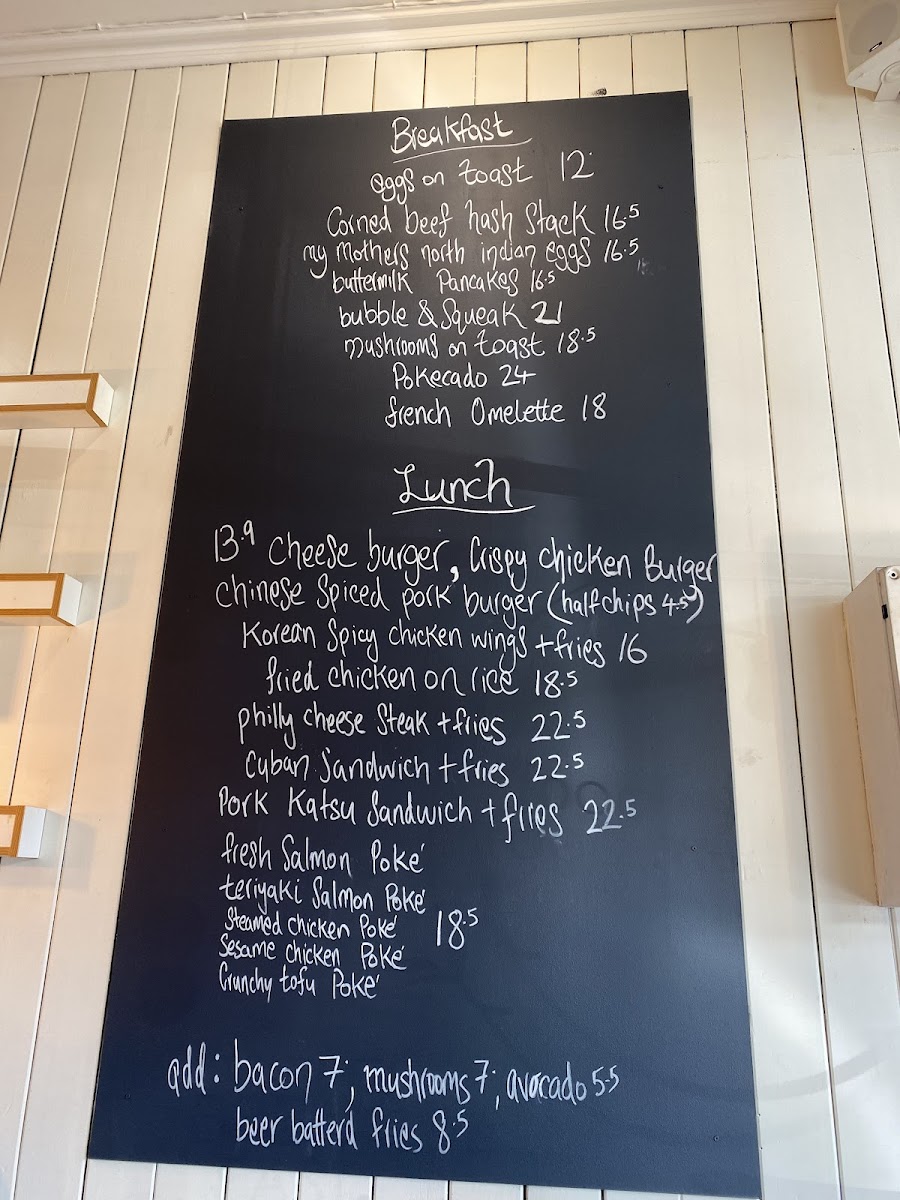 Breakfast
eggs on toast 12
Corned beef hash stack 16.5
my mothers north indian eggs 16.5
buttermilk Pancakes 16.5
bubble & Squeak 21
mushrooms on toast 18.5
Pokecado 24
french Omelette 18
Lunch
13.9 Cheese burger, Crispy chicken Burger
Chinese Spiced pork burger (half chips 4.5)
Korean Spicy chicken wings + fries 16
fried chicken on rice 18.5
philly cheese Steak + fries 22.5
Cuban Sandwich + fries 22.5
Pork Katsu Sandwich + fries 22.5
fresh Salmon Poké
teriyaki Salmon Poké
Steamed chicken Poké 18.5
Sesame chicken Poké
Crunchy tofu Poké
add: bacon 7, mushrooms 7, avocado 5.5
beer batterd fries 8.5